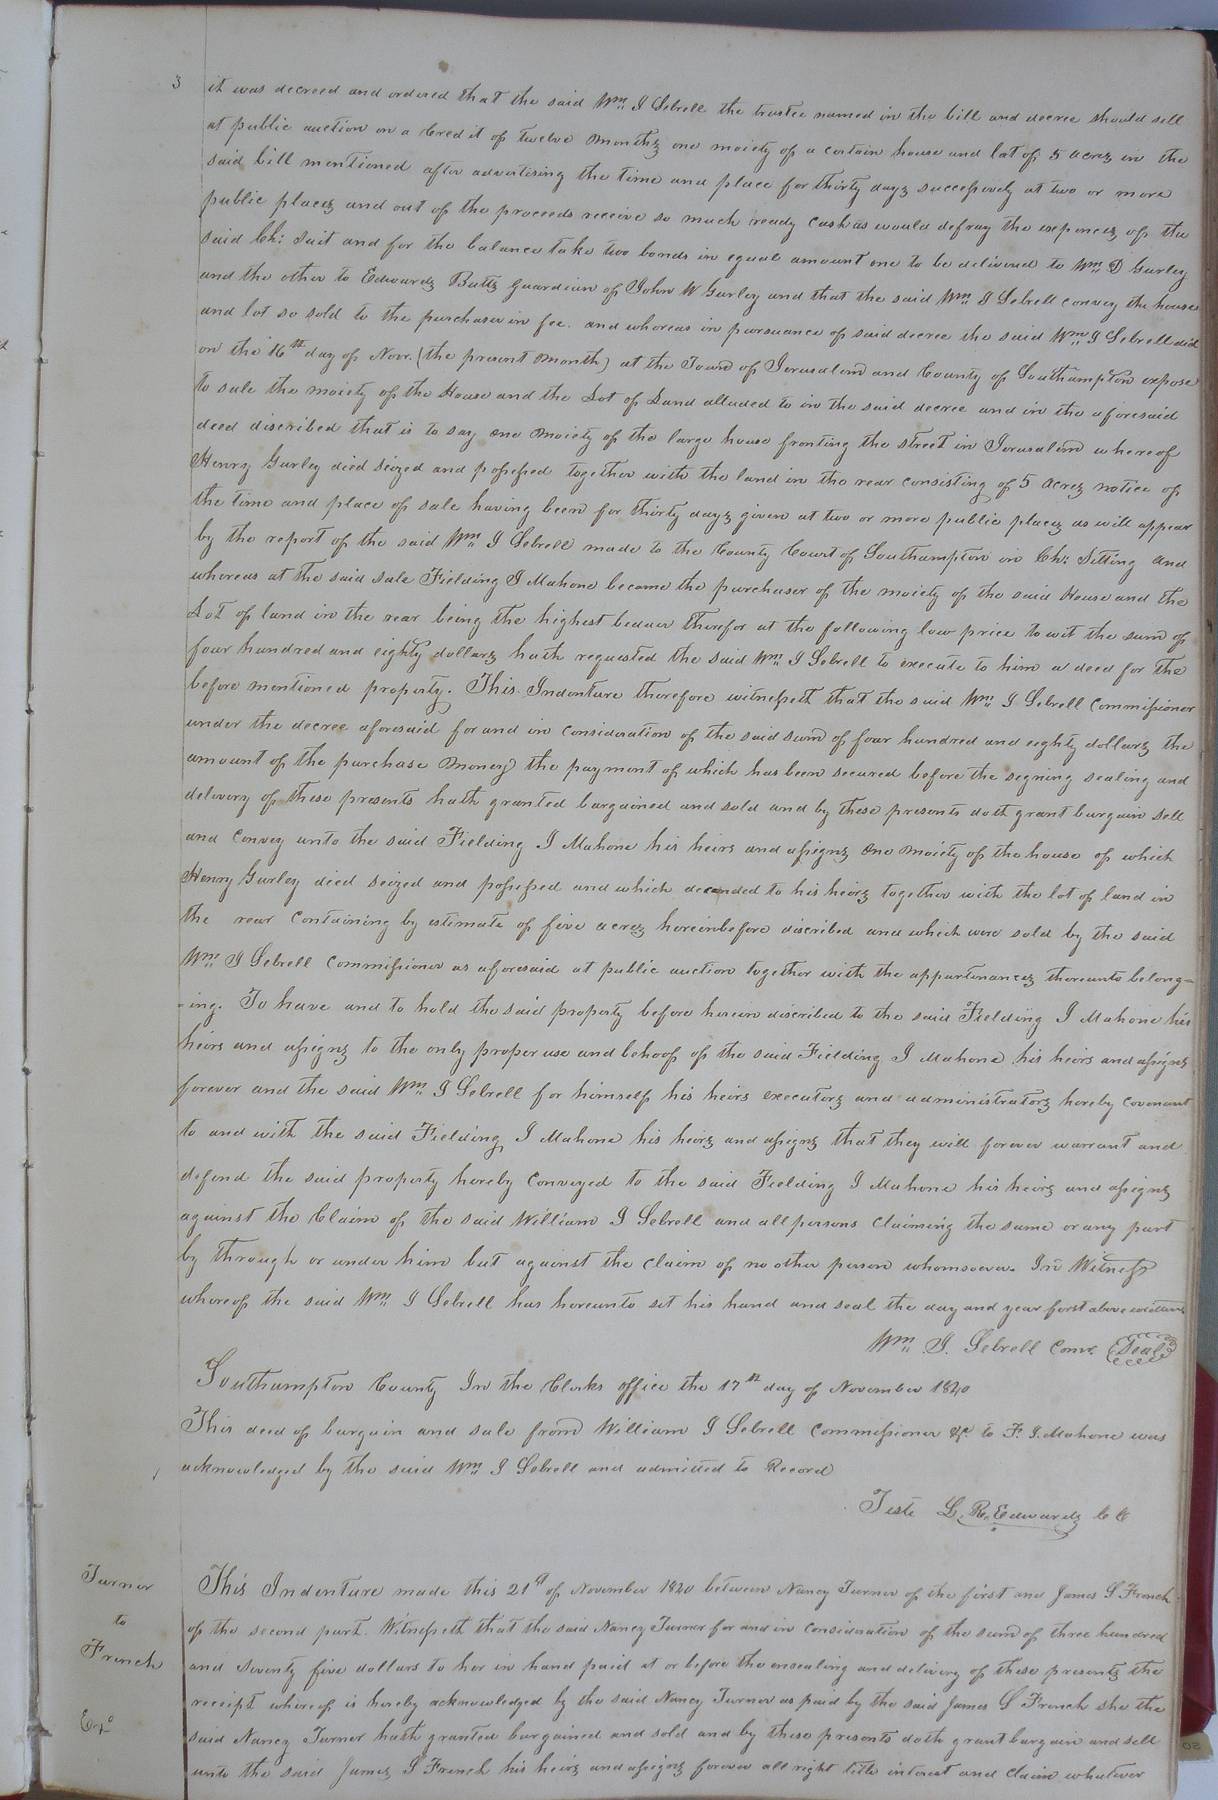 3
it was decreed and ordered that the said Wm. I Sebrell the trustee named in the bill and decree should sell
at public auction on a Credit of twelve Months one moiety of a certain house and lot of 5 acres in the
said bill mentioned after advertising the time and place for thirty days successively at two or more
public places and out of the proceeds receive so much ready cash as would defray the expences of the
said Ch: Suit and for the balance take two bonds in equal amount one to be delivered to Wm. D Gurley
and the other to Edwards Butts guardian of John W Gurley and that the said Wm. I Sebrell convey the house
and lot so sold to the purchaser in fee. and whereas in pursuance of said decree the said Wm. I Sebrell did
on the 16th day of Novr. (the present Month) at the Town of Jerusalem and County of Southampton expose
to sale the moiety of the House and the Lot of Land alluded to in the said decree and in the aforesaid
deed discribed that is to say one Moiety of the large house fronting the street in Jerusalem whereof
Henry Gurley died seized and possessed together with the land in the rear consisting of 5 acres notice of
the time and place of sale having been for thirty days given at two or more public places as will appear
by the report of the said Wm. I Sebrell made to the County Court of Southampton in Ch: Sitting and
whereas at the said sale Fielding I Mahone became the purchaser of the moiety of the said House and the
Lot of land in the rear being the highest bedder therefor at the following low price to wit the sum of
four hundred and eighty dollars hath requested the said Wm. I Sebrell to execute to him a deed for the
before mentioned property. This Indenture therefore witnesseth that the said Wm. I Sebrell Commissioner
under the decree aforesaid for and in consideration of the said sum of four hundred and eighty dollars the
amount of the purchase Money the payment of which has been secured before the signing sealing and
delivery of these presents hath granted bargained and sold and by these presents doth grant bargain sell
and Convey unto the said Fielding I Mahone his heirs and assigns One Moiety of the house of which
Henry Gurley died seized and possessed and which decended to his heirs together with the lot of land in
the rear Containing by estimate of five acres hereinbefore discribed and which were sold by the said
Wm. I Sebrell Commissioner as aforesaid at public auction together with the appurtenances thereunto belong=
=ing. To have and to hold the said property before herein discribed to the said Fielding I Mahone his
heirs and assigns to the only proper use and behoof of the said Fielding I Mahone his heirs and assigns
forever and the said Wm. I Sebrell for himself his heirs executors and administrators hereby covenant
to and with the said Fielding I Mahone his heirs and assigns that they will forever warrant and
defend the said property hereby Conveyed to the said Fielding I Mahone his heirs and assigns
against the Claim of the said William I Sebrell and all persons claiming the same or any part
by through or under him but against the claim of no other person whomsoever. In Witness
whereof the said Wm. I Sebrell has hereunto set his hand and seal the day and year first above written
Wm. I. Sebrell Comr. Seal
Southampton County In the Clerks office the 17th day of November 1840
This deed of bargain and sale from William I Sebrell Commissioner &c. to F. I. Mahone was
acknowledged by the said Wm. I Sebrell and admitted to Record
Teste L. R. Edwards C C
Turner
to
French
Exo.
This Indenture made this 21st of November 1840 between Nancy Turner of the first and James S French
of the second part. Witnesseth that the said Nancy Turner for and in consideration of the sum of three hundred
and seventy five dollars to her in hand paid at or before the ensealing and delivery of these presents the
receipt whereof is hereby acknowledged by the said Nancy Turner as paid by the said James S French she the
said Nancy Turner hath granted bargained and sold and by these presents doth grant bargain and sell
unto the said James S French his heirs and assigns forever all right title interest and claim whatever